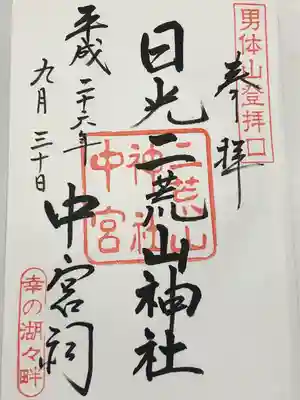 男体山登拝口
奉拝
日光二荒山神社
二荒山
神社
中宮
中宮祠
平成二十六年
九月三十日
幸の湖々畔